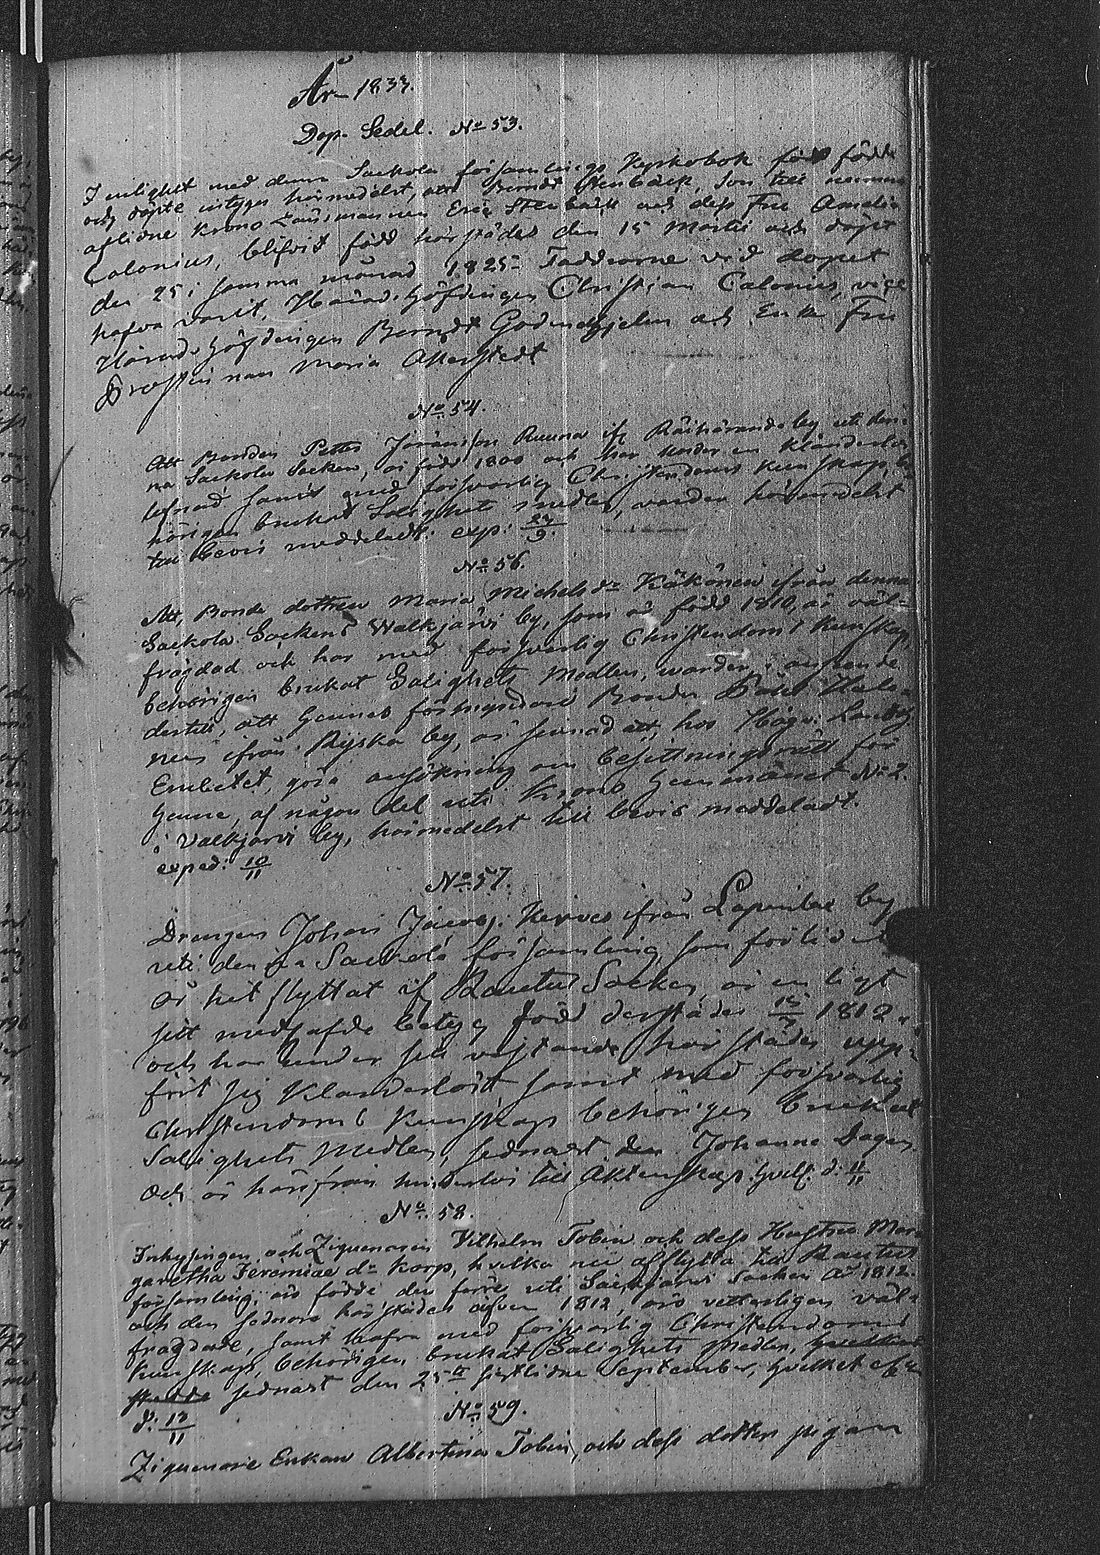 År 1833.
Dop. Sedel. No 53.
I enlighet med denna Sackola församlings Kyrkobok född födde
och döpte intygas härmedelst, att Berndt Stenbäck, Son till numera
aflidne Krono Länsmannen Eric Stenbäck och dess Fru Amalia
Calonius, blifvit född härstädes den 15 Martii och döpt
den 25 i samma månad 1825. Faddrarne vid dopet
hafva varit, Härads Höfdingen Christian Calonius, vice
Härads Höfdingen Berndt Godenhjelm och Enke Fru
Maria Åkerstedt
No 54.
Att Bonden Petter Jöransson Ruuna if Räihärandeby uti den-
na Sackola Socken, är född 1800 och har under en klanderlös
lefnad samt med försvarlig Christendoms kunskap, be-
hörigen brukat Salighets medlen, varder härmedelst
till bevis meddeladt. exp: 27/9.
No 56.
Att Bonde dottren Maria Michelsdr Käkönen ifrån denna
Sackola Sockens Walkjärvi by, som är född 1810, är väl
frägdad och har med försvarlig Christendoms kunskap,
behörigen brukat Salighets Medlen, warder, i anseende
dertill, att hennes förmyndare Bonden
nen ifrån Riiska by, är sinnad att, hos Högv. Landtz
Embetet, göra ansökning om besittningsrätt för
henne, af någon del uti Krono Hemmanet No 2.
i Valkjärvi by, härmedelst till bevis meddeladt.
exped: 10/11
No 57.
Drengen Johan Jacobs. Kervos ifrån Lapinlax by
uti denna Sackola församling, som förlid
år hit flyttat if Rautus Socken är enligt
sitt medhafde betyg född derstädes 15/ 1812.
och har under sitt vistande härstädes upp-
fört sig klanderlöst samt med försvarlig
Christendoms Kunskap behörigen brukat
Salighets Medlen, sednast den Johanne Dagen
och är härifrån hinderlös till Äktenskap. hvilf. d. 11/11
No 58.
Inhysingen och Ziguenaren Vilhelm Tobin och dess Hustru Mar-
garetha Jeremiae dr Korp, hvilka nu afflytta till Rautus
församling, äro födde den förre uti Säckjärvi Socken År 1812.
och den sednare härstädes äfven 1812, äro vetterligen väl-
frägdade, samt hafva med försvarlig Christendoms
kunskap, behörigen brukat Salighets medlen,
sednast den 25te sistlidne September, hvilket
d: 13/11
No 59.
Ziguenare Enkan Albertina Tobin, och dess dotter pigan